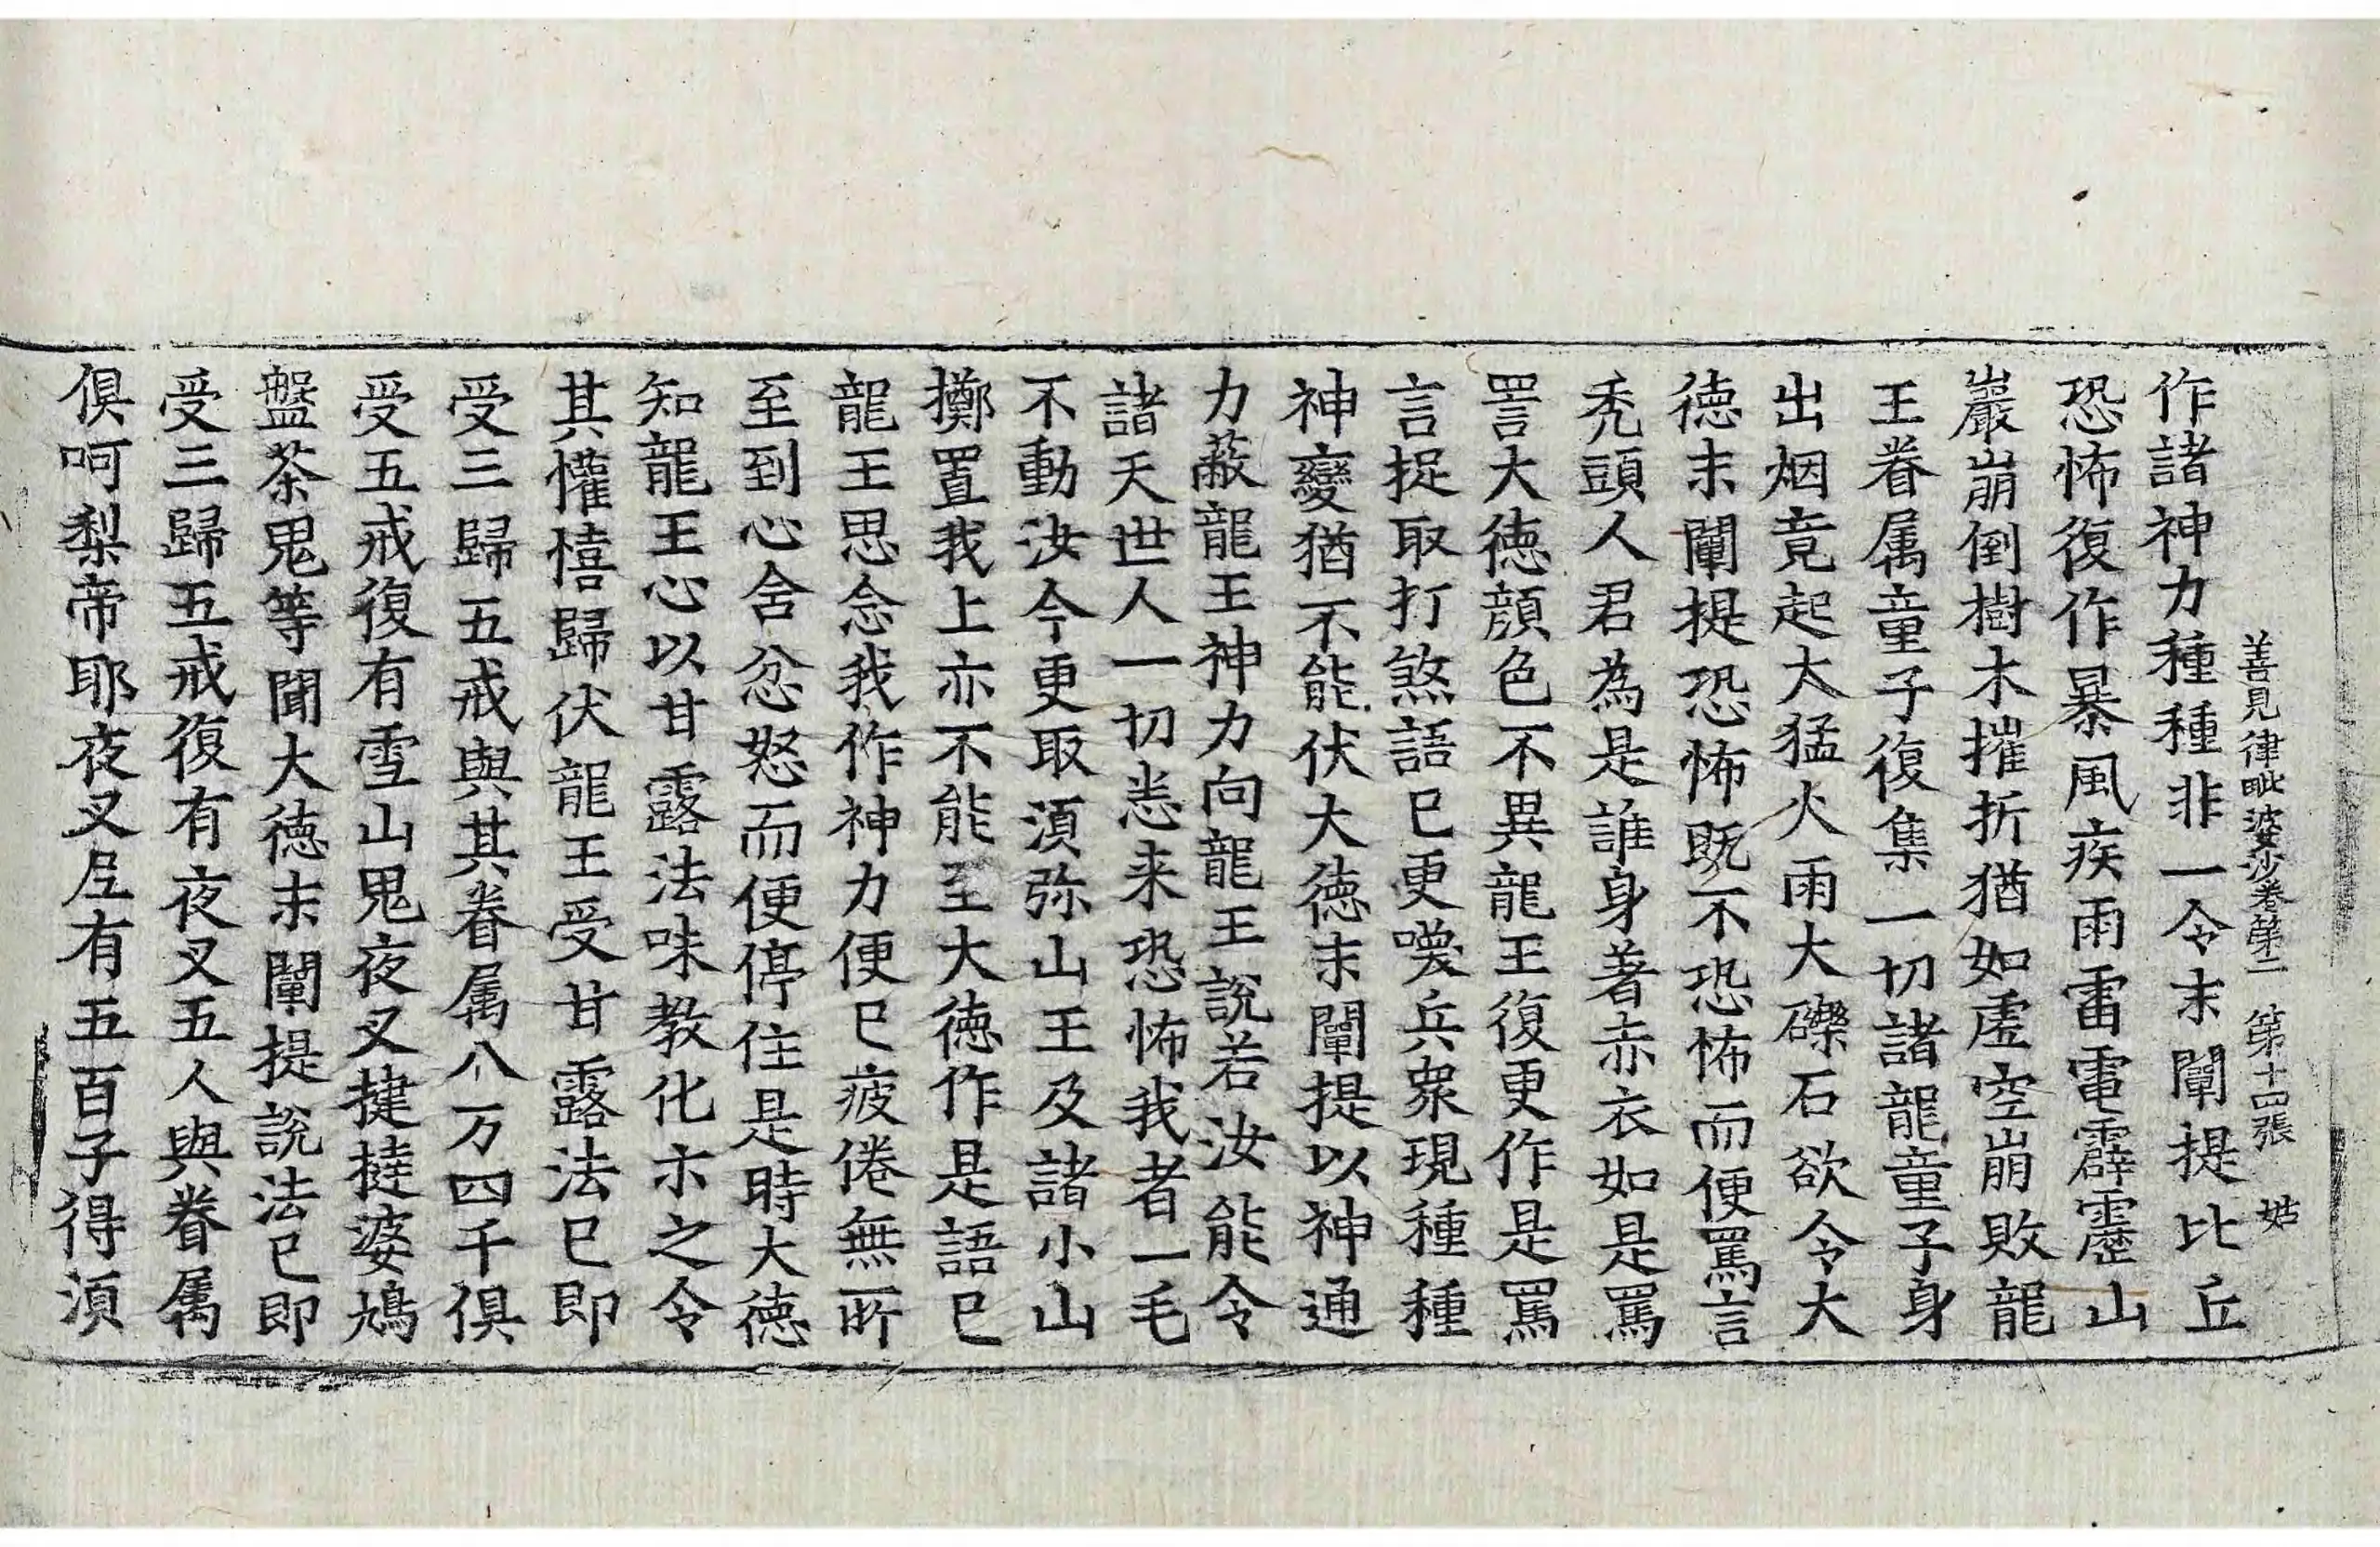 善見律毗婆沙卷第二 第十四張 姑
作諸神力種種非一令末闡提比丘
恐怖復作暴風疾雨雷電霹靂山
巖崩倒樹木摧折猶如虛空崩敗龍
王眷属童子復集一切諸龍童子身
出烟竟起大猛火雨大礫石欲令大
徳末闡提恐怖既不恐怖而便罵言
禿頭人君為是誰身著赤衣如是罵
詈大徳顔色不異龍王復更作是罵
言捉取打煞語已更喚兵衆現種種
神變猶不能伏大徳末闡提以神通
力蔽龍王神力向龍王說若汝能令
諸天世人一切悉来恐怖我者一毛
不動汝今更取湏弥山王及諸小山
擲置我上亦不能至大徳作是語已
龍王思念我作神力便已疲倦無所
至到心含忿怒而便停住是時大徳
知龍王心以甘露法味教化示之令
其懽憘歸伏龍王受甘露法已即
受三歸五戒與其眷属八万四千俱
受五戒復有雪山鬼夜叉揵撻婆鳩
盤茶鬼等聞大徳末闡提說法已即
受三歸五戒復有夜叉五人與眷属
俱呵梨帝耶夜叉𡰱有五百子得湏